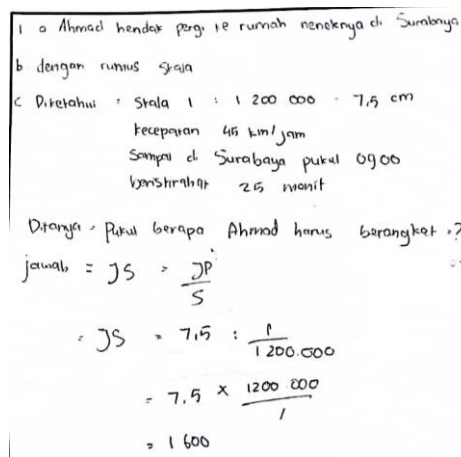 1 a Ahmad hendak pergi ke rumah neneknya di Surabaya
b dengan rumus skala
c Diketahui : Skala 1 : 1 200 000 - 7,5 cm
kecepatan 45 km/jam
Sampai di Surabaya pukul 09 00
beristirahat 25 menit
Ditanya : Pukul berapa Ahmad harus berangkat ?
jawab = JS = JP / S
= JS = 7,5 : 1 / 1 200.000
= 7,5 × 1200 000 / 1
= 1 600